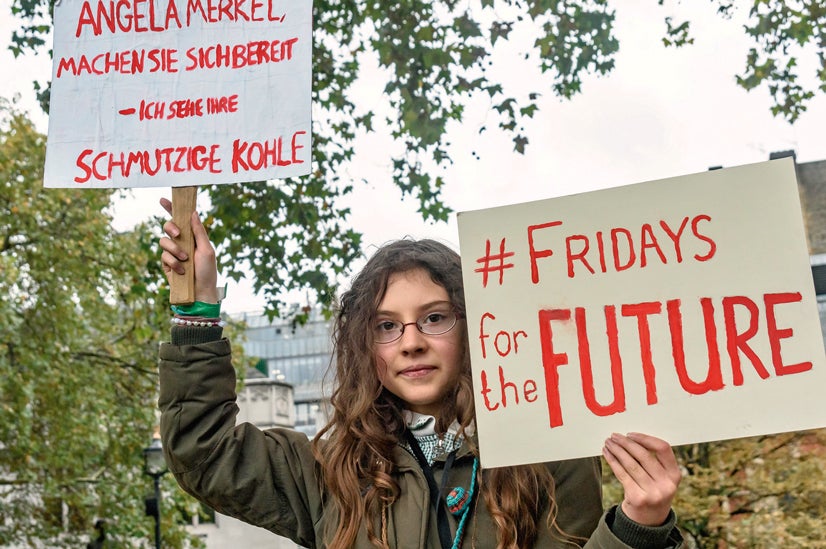 ANGELA MERKEL,
MACHEN SIE SICH BEREIT
- ICH SEHE IHRE
SCHMUTZIGE KOHLE
# FRIDAYS
for the FUTURE